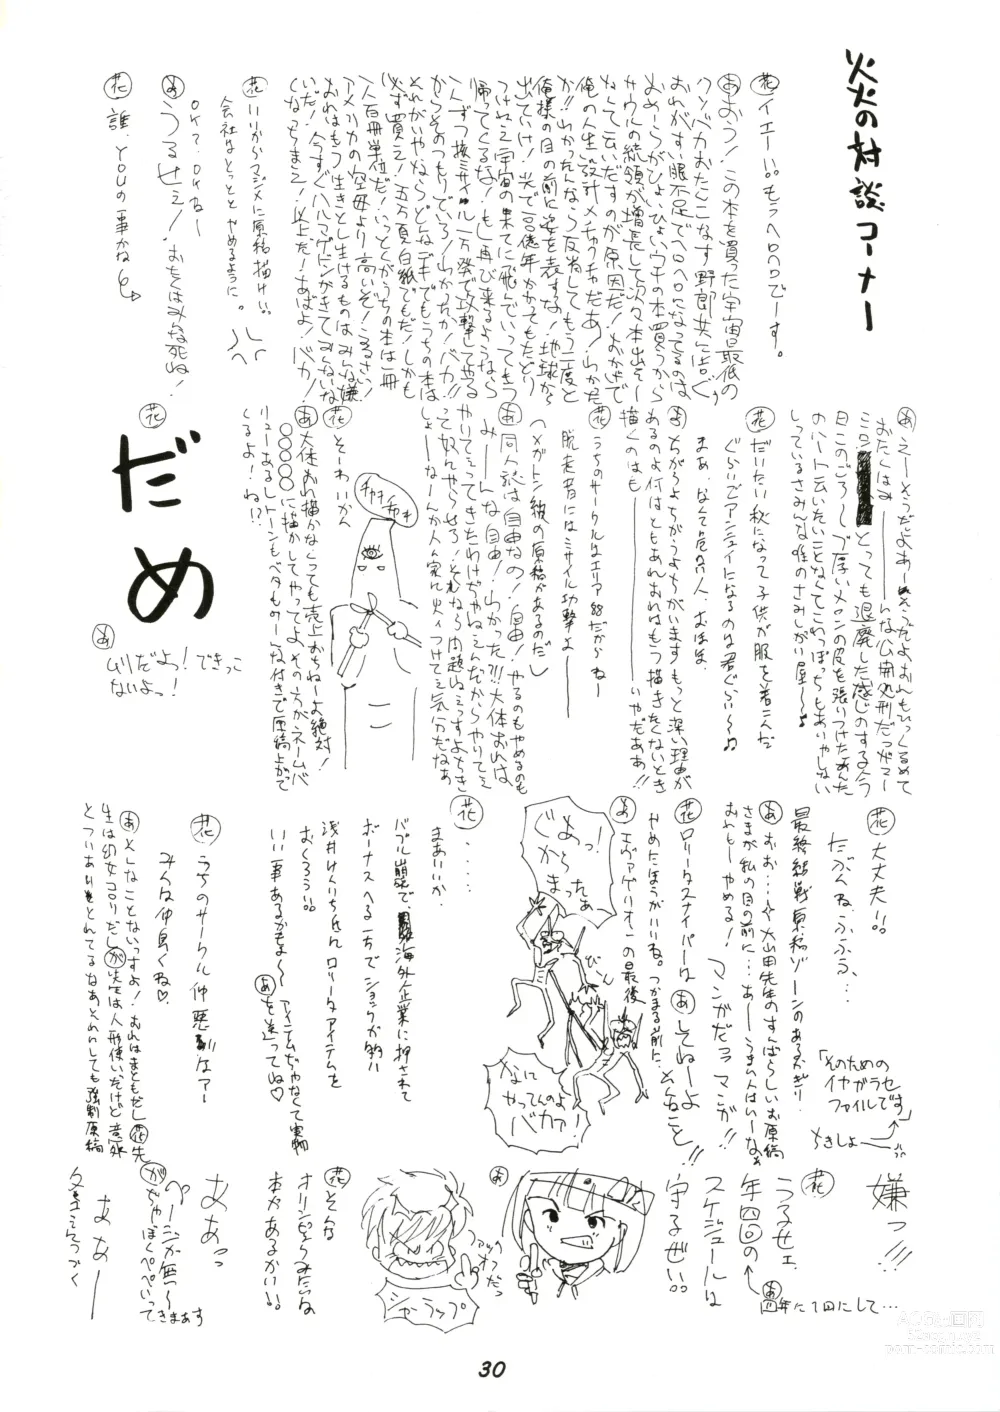 炎の対談コーナー
花 イエーいもうヘロヘロでーす。
あ おう!この本を買った宇宙最低の
クソバカおたくこなす野郎共に告ぐぅ
おれがすい眠不足でヘロヘロになってるのは
おめーらがひょいひょいウチの本買うから
サウルの統領が増長して次々本出そー
なんて云いだすのが原因だ!おかげで
俺の人生設計メチャクチャだあ!わかった
か!!わかったんなら反省してもう二度と
俺様の目の前に姿を表すな!地球から
出ていけ!光で百億年かかってもたどり
つけねェ宇宙の果てに飛んでいってきっ
帰ってくるな!もし再び来るようなら
一人ずつ核ミサイル一万発で攻撃して
からそのつもりでいろ!わかったか!バカ!!
それがいやならどんなデキでもうちの本は
必ず買え!五万頁白紙でもだ!しかも
一人百冊単位だ!いっとくがうちの本は一冊
アメリカの空母より高いぞ!うるさい!
おれはもう生きとし生けるものはみんな嫌
いだ!今すぐハルマゲドンがきてみんないな
くなっちまえ!以上だ!あばよ!バカ!
花 いいからマジメに原稿描けい。
会社はとっととやめるように。
あ うるせェ!おたくはみな死ね!
OK?OKねー
花 誰、YOUの事かね
おたくはみ――んな公開処刑だっがマー
とっても退廃した感じのする今
日このごろ〜ブ厚いメロンの皮を張りつけたあんた
のハート云いたいことなんてこれっぽっちもありゃしない
しっているさみんな唯のさみしがい屋〜♪
花 だいたい秋になって子供が服を着こんだ
ぐらいでアンニュイになるのは君ぐらい〜♪
まあ、なくて七癖、おほほ
あ ちがうよちがうよちがいますもっと深い理由が
あるのよ何はともあれおれはもう描きたくないとき
描くのはも――――いやだああ!!
花 うちのサークルはエリア88だからねー
脱走者にはミサイル攻撃よ――
(メガトン級の原稿があるのだし)
あ 同人誌は自由なの!自由!やるのもやめるのも
み――んな自由!わかった?!!大体おれは
しょーなーんか人ん家に火ィつけてェ気分だなあ
花 そーわいかん
チョキチョキ
あ 大体おれ描かなくっても売上おちねーよ絶対!
○○○○○に描かしてやってよその方がネームバ
リューあるしトーンもベタもめーいな付きで原稿上がって
くるよ!ね!?
花
だめ
あ ムリだよっ!できっこ
ないよっ!
花 大丈夫!!
たぶんねふふふ、
最終結戦原稿ゾーンのあるかぎり.
あ おお…!火山田先生のすんばらしいお原稿
さまが私の目の前に…あ――うまい人はいーなぁ
おれとーやめる!マンガだヨマンガ!!
花 ロリータスナイパーは あ してねーよ
やめたほうがいいね。つかまる前に. んなこと!!
あ エヴァンゲリオンの最後
ぐおっ!
からまったぁ
びーん
なに
やってんのよ
バカァ!
花 ・・・・・
まあいいか、
バブル崩壊で、海外企業に押されて
ボーナスへる一方でショックが多い
浅井けんいちくんロリータアイテムを
おくろう!!
いい事あるかもよ〜 アイテムぢゃなくて実物
あ を送ってね♡
花 うちのサークル仲悪いなァー
みんな仲良くね♡.
あ としなことないっすよ!おれはまともだし 花 先
生は幼女コロリだし が 先生は人形使いだけど意外
とついありとれてるなあとわいしても強制原稿
「そのための
イヤガラセ
ファイルです」
ちきしょ
嫌っ!!!
花 うるせェ
年四回の
スケジュールは
守るぜい!!
あ 四年に1回にして…
あ
ファックおォだっ
シャーラップ
花 そんな
オリンピックみたいな
本があるかい!!
あぁっ
ページが無〜
が ぢゃぼくペペいって
きまぁす
あぁ――
30